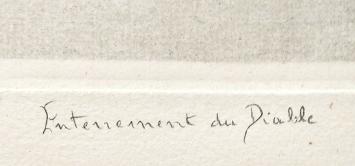 Enterrement du Diable